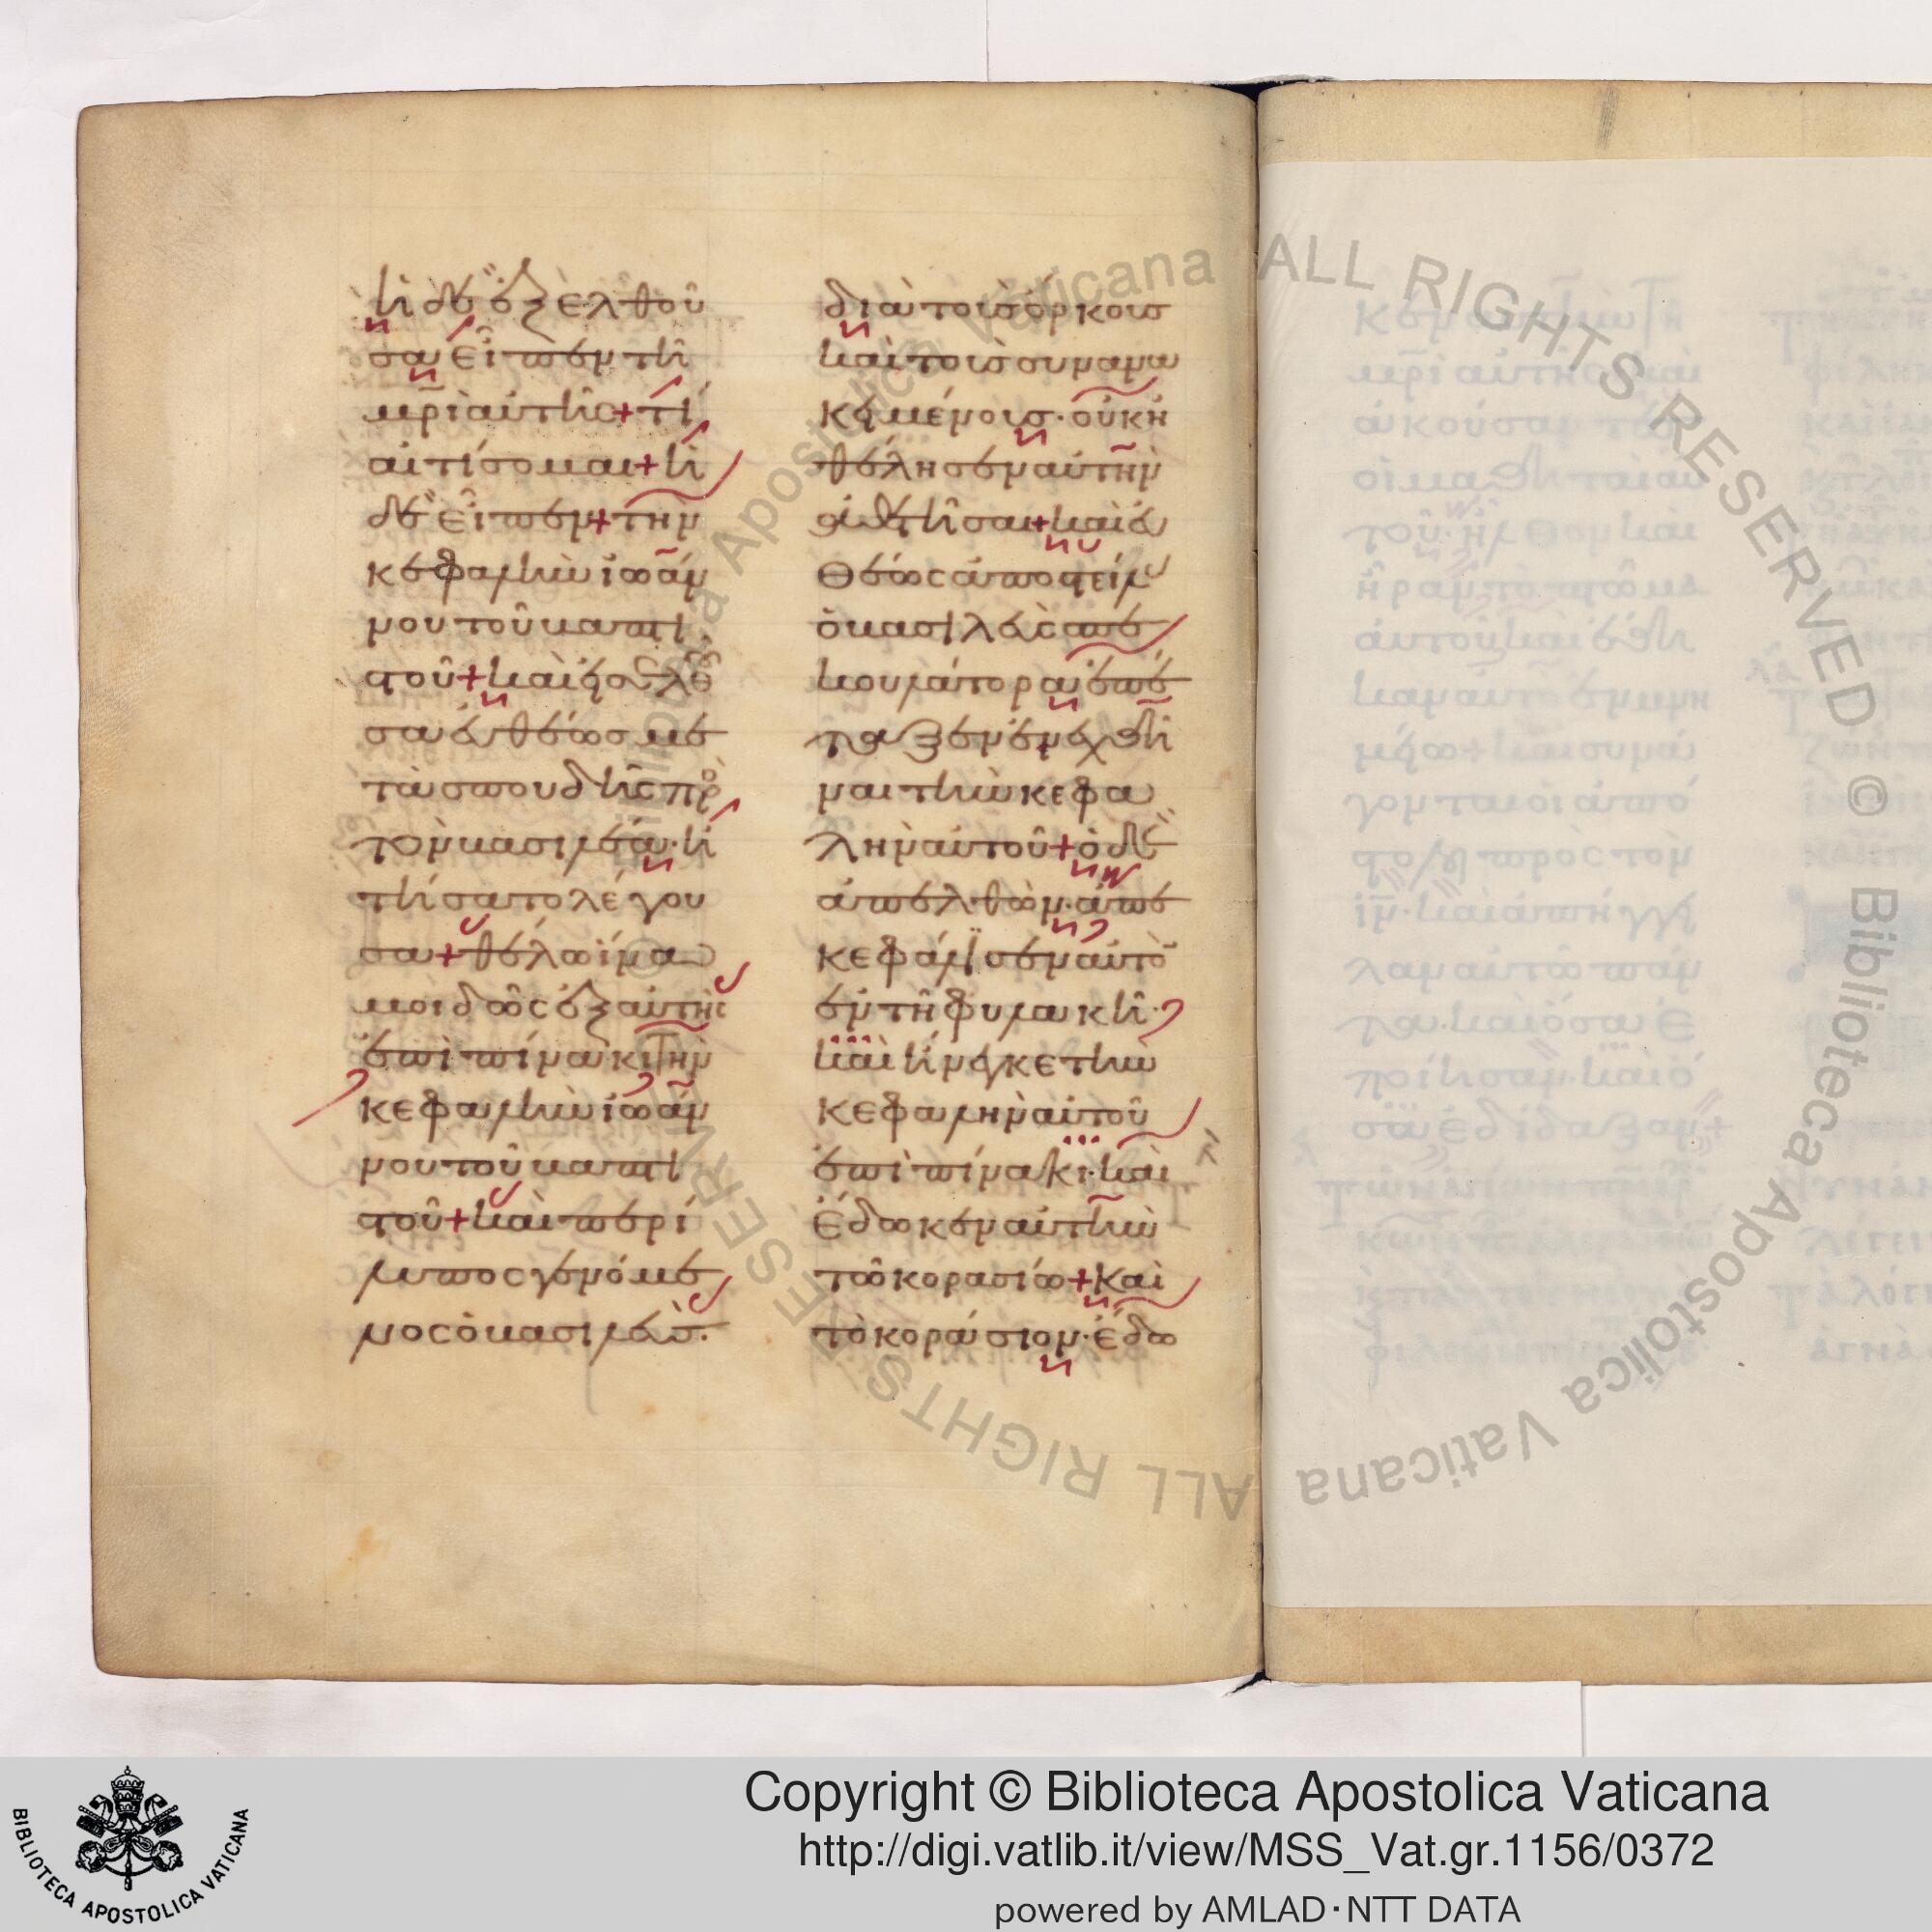 ἡ δὲ ἐξελθοῦ
σα εἶπεν τῆ
μρὶ αὐτῆς + τί
αἰτίσομαι + ἡ
δὲ εἶπεν + τὴν
κεφαλὴν ἰωάν
νου τοῦ βαπτι
στοῦ + καὶ εἰσελθοῦ
σα εὐθέως με
τὰ σπουδῆς πρὸ
τὸν βασιλέα· ἡ
τήσατο λέγου
σα + θέλω ἵνα
μοι δῶς ἐξ αὐτῆς
ἐπὶ πίνακι τὴν
κεφαλὴν ἰωάν
νου τοῦ βαπτι
στοῦ + καὶ περί
λυπος γενόμε
νος ὁ βασιλεὺς·
διὰ τοὺς ὅρκους
καὶ τοὺς συνανα
κειμένους· οὐκ ἠ
θέλησεν αὐτὴν
ἀθετῆσαι + καὶ εὐ
θέως ἀποστείλ
ὁ βασιλεὺς σπε
κουλάτορα ἐπέ
ταξεν ἐνεχθῆ
ναι τὴν κεφα
λὴν αὐτοῦ + ὁ δὲ
ἀπελθὼν· ἀπε
κεφάλισεν αὐτὸ
ἐν τῆ φυλακῆ·
καὶ ἤνεγκε τὴν
κεφαλὴν αὐτοῦ
ἐπὶ πίνακι· καὶ
ἔδωκεν αὐτὴν
τῶ κορασίω + Καὶ
τὸ κοράσιον· ἔδω
ALL RIGHTS RESERVED © Biblioteca Apostolica Vaticana
Copyright © Biblioteca Apostolica Vaticana
http://digi.vatlib.it/view/MSS_Vat.gr.1156/0372
powered by AMLAD·NTT DATA
BIBLIOTECA APOSTOLICA VATICANA